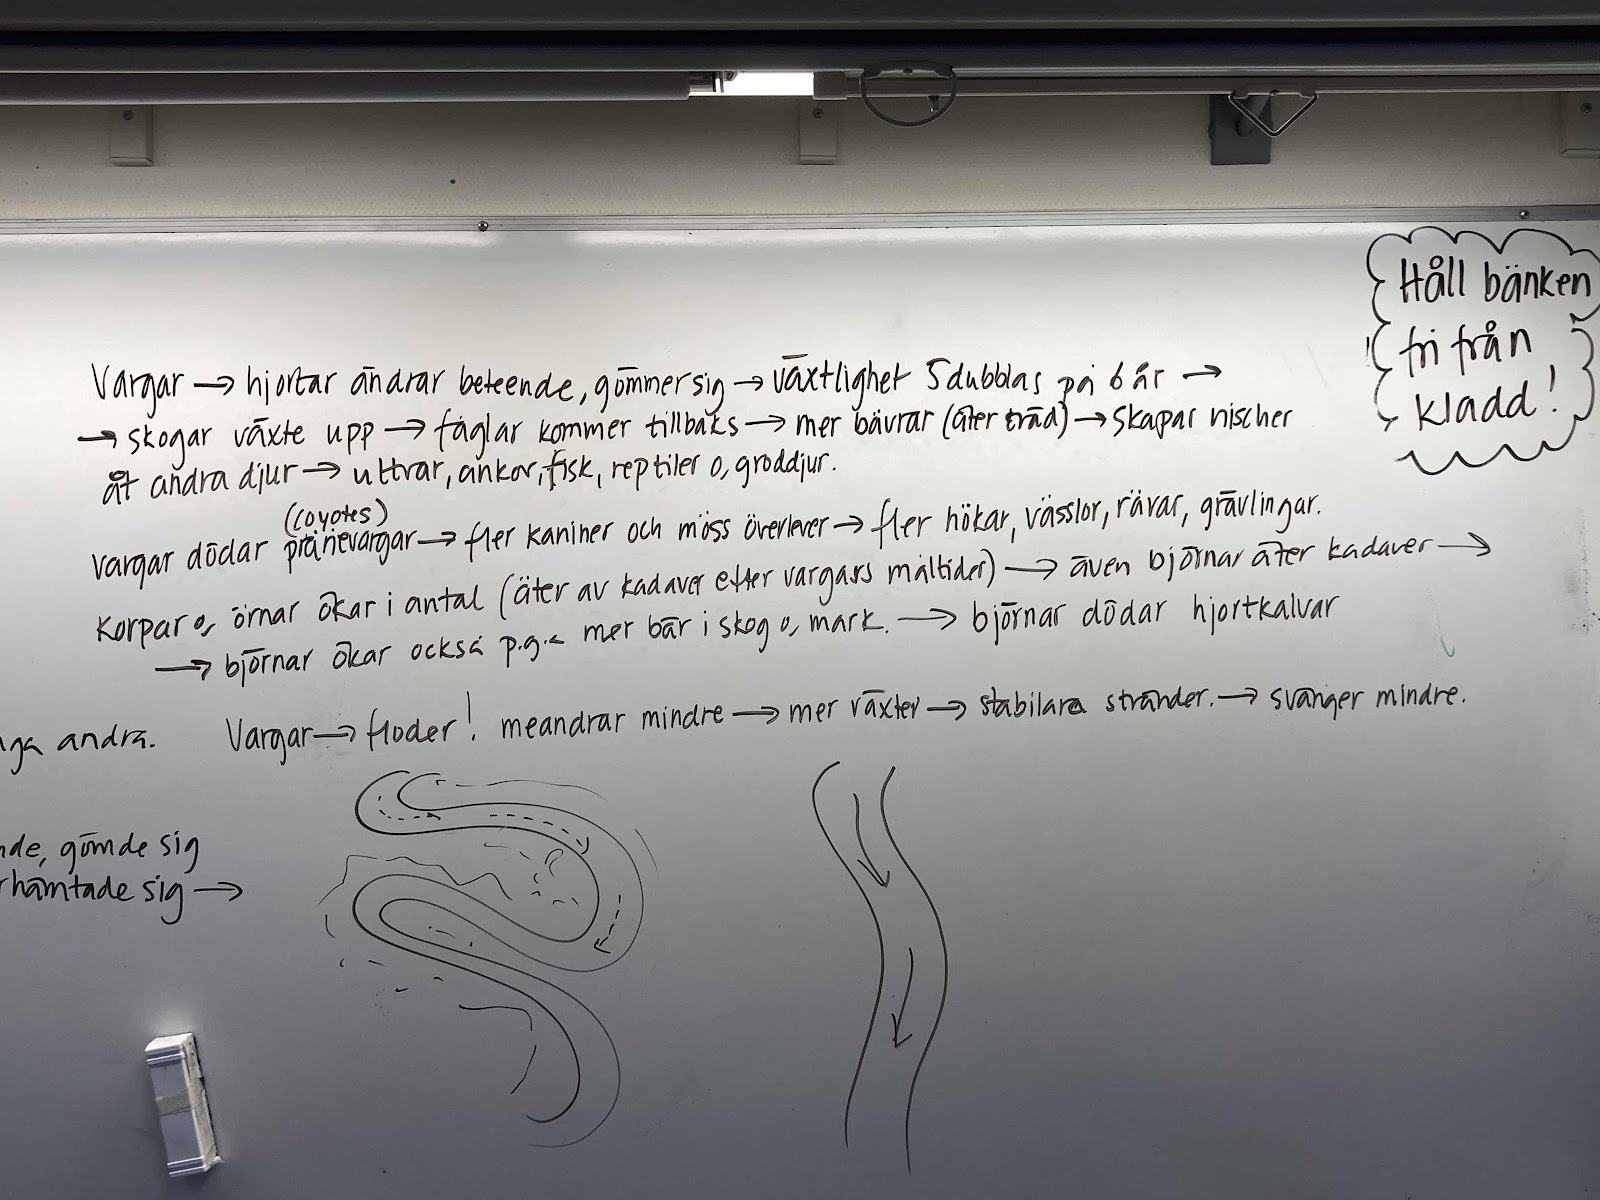 Håll bänken
fri från
kladd!
Vargar → hjortar ändrar beteende, gömmer sig → växtlighet 5dubblas på 6 år →
→ skogar växte upp → fåglar kommer tillbaks → mer bävrar (äter träd) → skapar nischer
åt andra djur → uttrar, ankor, fisk, reptiler o, groddjur.
(coyotes)
vargar dödar prärievargar → fler kaniner och möss överlever → fler hökar, vässlor, rävar, grävlingar.
korpar o, örnar ökar i antal (äter av kadaver efter vargars måltider) → även björnar äter kadaver →
→ björnar ökar också p.g.a mer bär i skog o, mark. → björnar dödar hjortkalvar
andra. Vargar → floder! meandrar mindre → mer växter → stabilare stränder. → svänger mindre.
gömde sig
hämtade sig →